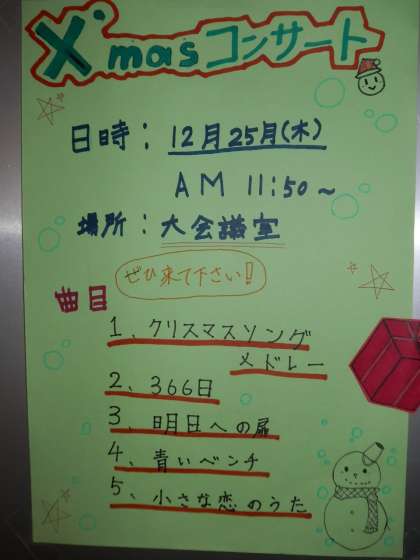 X'masコンサート
日時：12月25月(木)
AM 11:50〜
場所：大会議室
ぜひ来て下さい!!
曲目
1、クリスマスソング
メドレー
2、366日
3、明日への扉
4、青いベンチ
5、小さな恋のうた